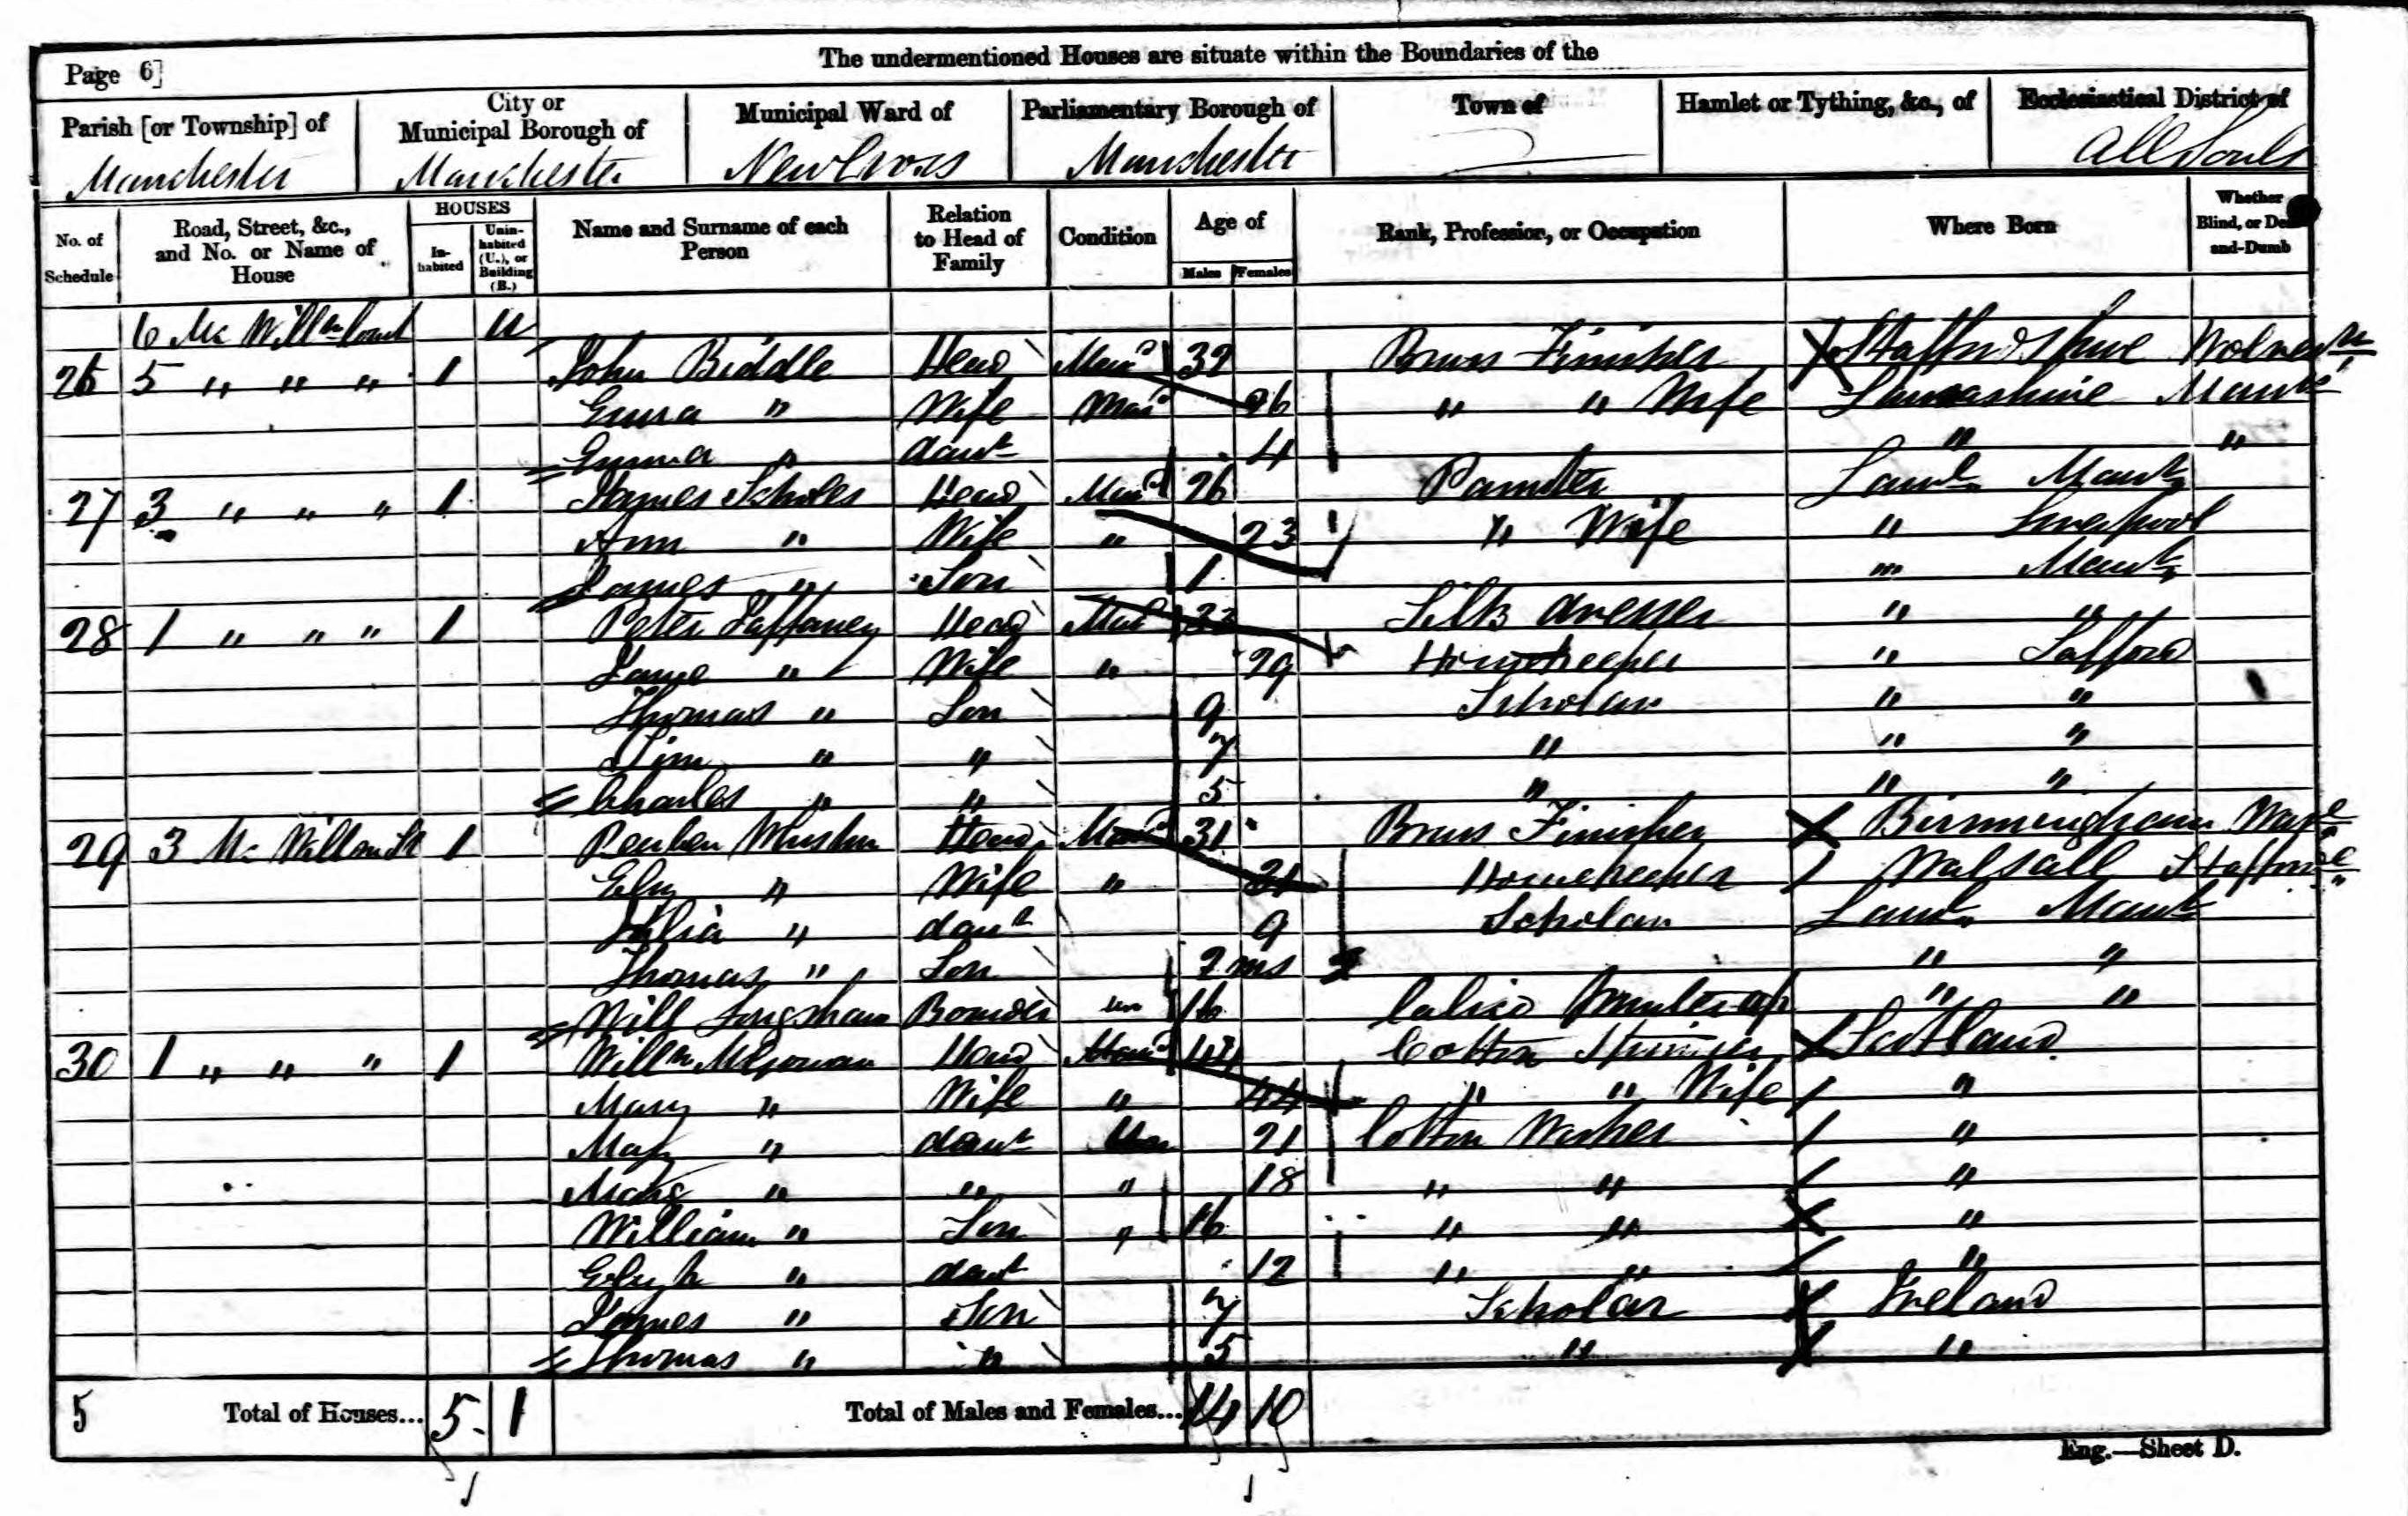 The undermentioned Houses are situate within the Boundaries of the
Page 6]
Parish [or Township] of
City or Municipal Borough of
Municipal Ward of
Parliamentary Borough of
Town of
Hamlet or Tything, &c., of
Ecclesiastical District of
Manchester Manchester New Cross Manchester All Souls
No. of Schedule
Road, Street, &c., and No. or Name of House
HOUSES
In-habited
Unin-habited (U.), or Building (B.)
Name and Surname of each Person
Relation to Head of Family
Condition
Age of
Males Females
Rank, Profession, or Occupation
Where Born
Whether Blind, or Deaf-and-Dumb
6 Mc Willm Court U
26 5 " " " 1 John Biddle Head Mar 32 Brass Finisher Staffordshire
Emma " Wife Mar 26 " " Wife Lancashire Manr
Emma " daur 4 " "
27 3 " " " 1 James Scholes Head Mard 26 Painter Lanc Manr
Ann " Wife " 23 " Wife " Liverpool
James " Son 1 " Manr
28 1 " " " 1 Peter Laffaney Head Mar 33 Silk dresser " "
Jane " Wife " 29 Housekeeper " Salford
Thomas " Son 9 Scholar " "
Jim " " 7 " " "
Charles " " 5 " " "
29 3 Mc Willm St 1 Reuben Head Mar 31 Brass Finisher Birmingham
" Wife " 31 Housekeeper Walsall
Julia " daur 9 Scholar Lanc Manr
Thomas " Son 2 ms " "
Will Boarder un 16 Calico Printer ap " "
30 1 " " " 1 Willm McGowan Head Mar 44 Cotton Scotland
Mary " Wife " 44 " " Wife "
" daur Un 21 Cotton "
" " " 18 " " "
William " Son " 16 " " "
" daur 12 " " "
James " Son 7 Scholar Ireland
Thomas " " 5 " "
5 Total of Houses... 5 1 Total of Males and Females... 14 10
Eng.—Sheet D.